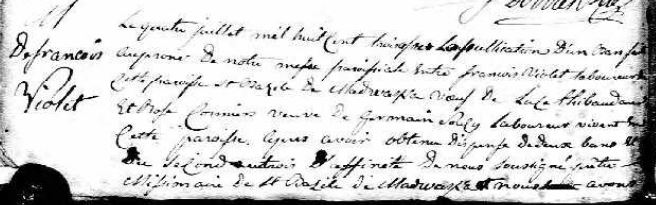 M
De francois
Violet
Le quatre juillet mil huit cent treize la publication d'un ban fait
au prone de notre messe paroissiale entre francois Violet laboureur de
cette paroisse St Basile de Madwaska veuf de Luce thibaudau
Et Rose Cormier veuve de Germain Soucy laboureur vivant de
Cette paroisse, apres avoir obtenu dispense de deux bans et
du second d'affinité de nous soussigné prêtre
Missionaire de St Basile de Madwaska nous avons